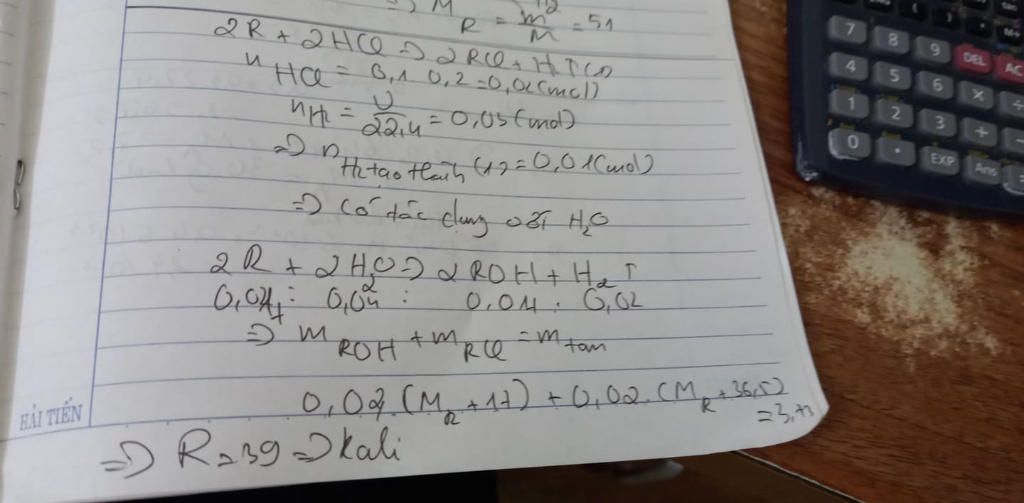 => M_R = m/M = 51
2R + 2HCl => 2RCl + H2↑ (1)
nHCl = 0,1 . 0,2 = 0,02 (mol)
nH2 = V/22,4 = 0,03 (mol)
=> nH2 tạo thành (1) = 0,01 (mol)
=> Có tác dụng với H2O
2R + 2H2O => 2ROH + H2↑
0,04 : 0,04 : 0,04 : 0,02
=> mROH + mRCl = mtan
0,02 . (MR + 17) + 0,02 . (MR + 36,5)
= 3,73
=> R = 39 => kali
HẢI TIẾN
7 8 9 DEL AC
4 5 6 × ÷
1 2 3 + −
0 • EXP Ans =